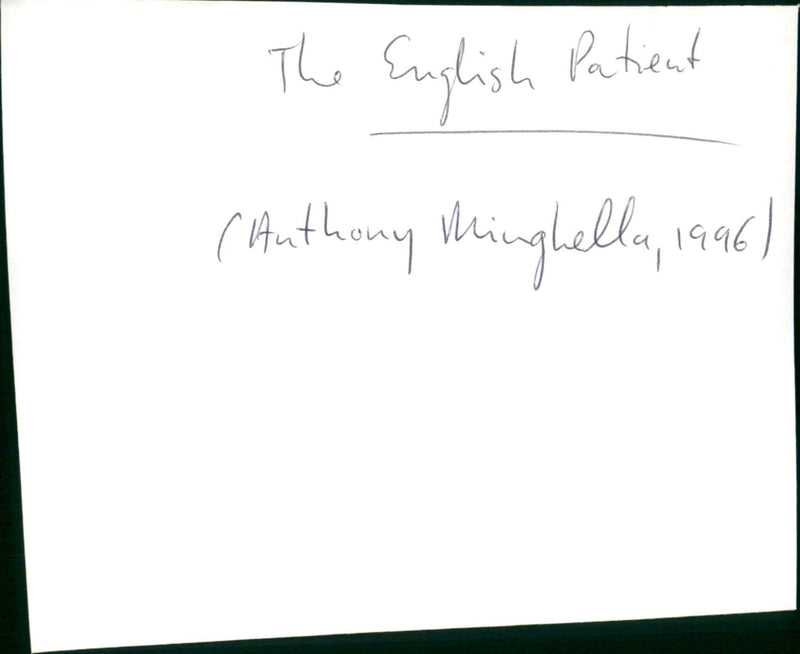 The English Patient
(Anthony Minghella, 1996)